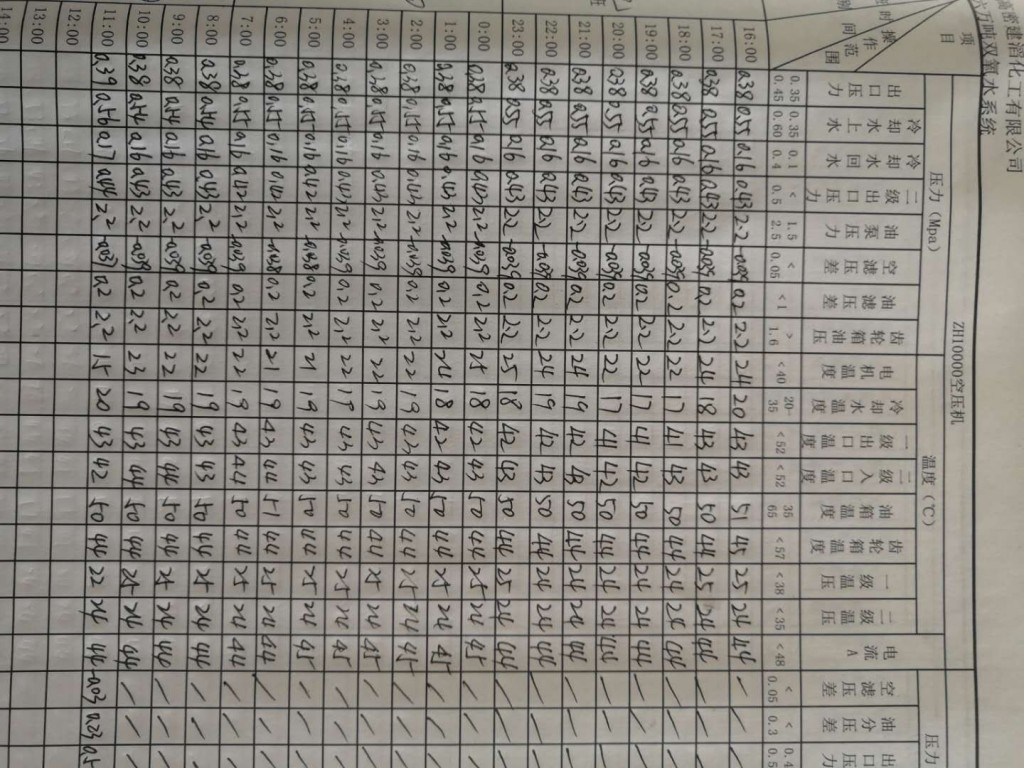 高密建滔化工有限公司
六万吨双氧水系统
ZH10000空压机
项目 操作范围 时间
压力(Mpa) 温度(℃) 压力
出口压力 冷却水上水 冷却水回水 二级出口压力 油泵压力 空滤压差 油滤压差 齿轮箱油压 电机温度 冷却水温度 一级出口温度 二级入口温度 油箱温度 齿轮箱温度 一级温压 二级温压 电流A 空滤压差 油分压差 出口压
0.35 0.45 0.35 0.60 0.1 0.4 <0.5 1.5 2.5 <0.05 <1 >1.6 <40 20-35 <52 <52 35 65 <57 <38 <35 <48 <0.05 <0.3 0.4 0.5
16:00 0.38 0.55 0.16 0.43 2.2 -0.039 0.2 2.2 24 20 43 43 51 45 25 24 44 / / /
17:00 0.38 0.55 0.16 0.43 2.2 -0.039 0.2 2.2 24 18 43 43 50 44 25 24 44 / / /
18:00 0.38 0.55 0.16 0.43 2.2 -0.039 0.2 2.2 22 17 41 43 50 44 24 24 44 / / /
19:00 0.38 0.55 0.16 0.43 2.2 -0.039 0.2 2.2 22 17 41 42 50 44 24 24 44 / / /
20:00 0.38 0.55 0.16 0.43 2.2 -0.039 0.2 2.2 22 17 41 42 50 44 24 24 44 / / /
21:00 0.38 0.55 0.16 0.43 2.2 -0.039 0.2 2.2 24 19 42 43 50 44 24 24 44 / / /
22:00 0.38 0.55 0.16 0.43 2.2 -0.039 0.2 2.2 24 19 42 43 50 44 24 24 44 / / /
23:00 0.38 0.55 0.16 0.43 2.2 -0.039 0.2 2.2 25 18 42 43 50 44 25 24 44 / / /
0:00 0.38 0.55 0.16 0.43 2.2 -0.039 0.2 2.2 25 18 42 43 50 44 25 24 45 / / /
1:00 0.38 0.55 0.16 0.43 2.2 -0.039 0.2 2.2 24 18 42 43 50 44 25 24 45 / / /
2:00 0.38 0.55 0.16 0.43 2.2 -0.039 0.2 2.2 22 19 43 43 50 44 25 24 45 / / /
3:00 0.38 0.55 0.16 0.43 2.2 -0.039 0.2 2.2 22 19 43 43 50 44 25 24 45 / / /
4:00 0.38 0.55 0.16 0.43 2.2 -0.049 0.2 2.2 22 19 43 43 50 44 25 24 45 / / /
5:00 0.38 0.55 0.16 0.42 2.2 -0.048 0.2 2.2 21 19 43 43 50 44 25 24 45 / / /
6:00 0.38 0.55 0.16 0.42 2.2 -0.048 0.2 2.2 21 19 43 44 51 44 25 24 44 / / /
7:00 0.38 0.55 0.16 0.42 2.2 -0.039 0.2 2.2 22 19 43 44 50 44 25 24 44 / / /
8:00 0.38 0.40 0.16 0.43 2.2 -0.039 0.2 2.2 22 19 43 43 50 44 25 24 44 / / /
9:00 0.38 0.41 0.16 0.43 2.2 -0.039 0.2 2.2 22 19 43 44 50 44 25 24 440 / / /
10:00 0.38 0.54 0.16 0.43 2.2 -0.039 0.2 2.2 23 19 43 44 50 44 25 24 44 / / /
11:00 0.39 0.56 0.17 0.44 2.2 -0.03 0.2 2.2 15 20 43 42 50 44 22 24 44 -0.03 0.23
12:00
13:00
14:00